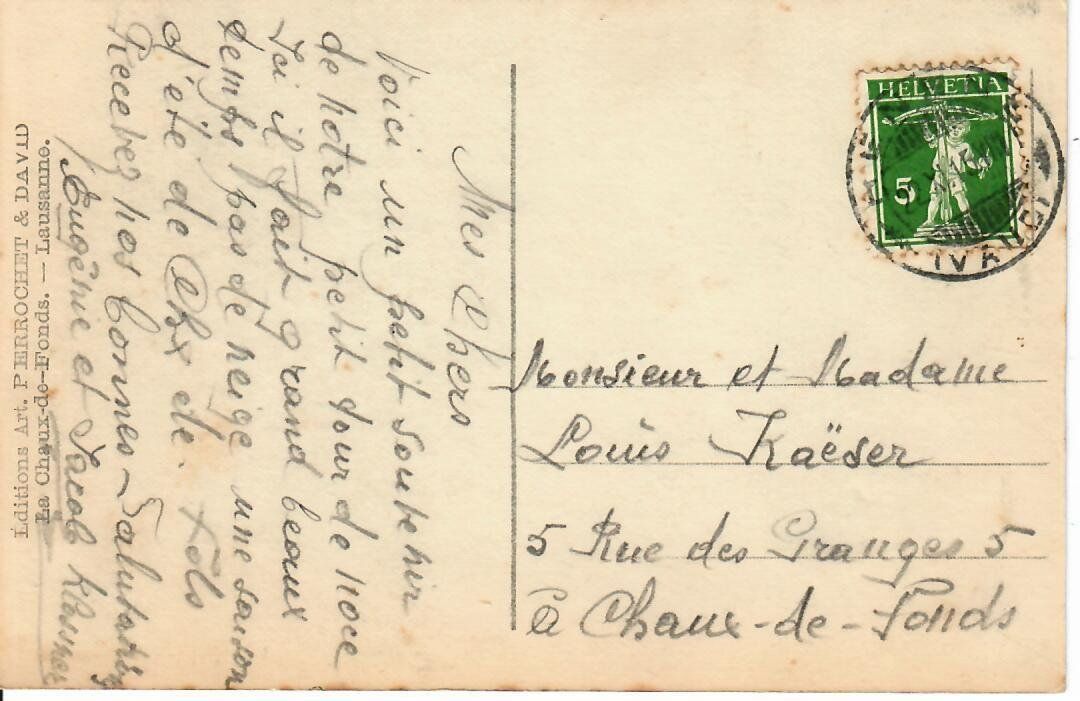 Mes Chers
Voici un petit souvenir
de notre petit tour de noce
Ici il fait grand beaux
temps pas de neige une saison
d'été de
Recevez nos bonnes Salutations
Eugénie et Jacob
Éditions Art. PERROCHET & DAVID
La Chaux-de-Fonds. — Lausanne.
HELVETIA
5
Monsieur et Madame
Louis Kaëser
5 Rue des Granges 5
à Chaux-de-Fonds